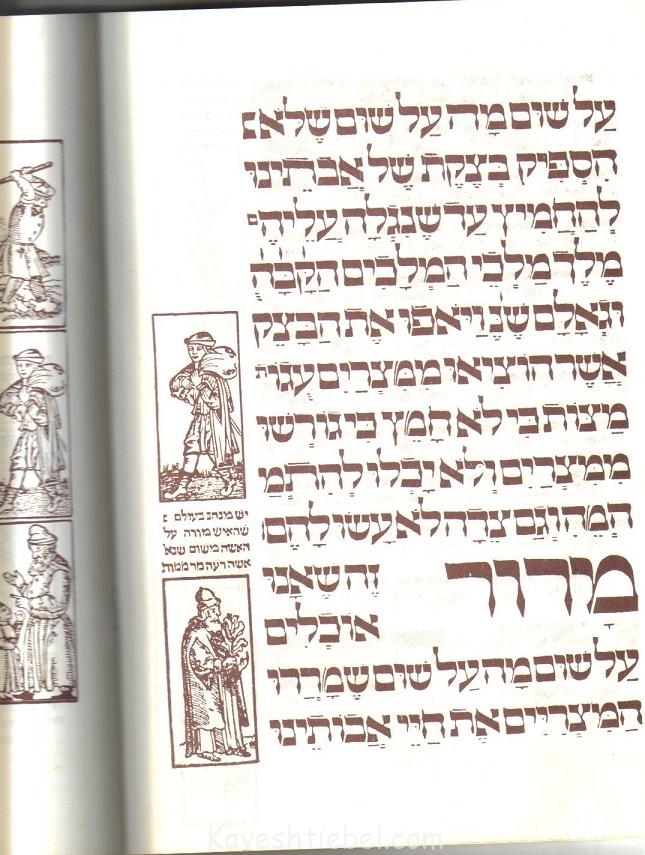 עַל שׁוּם מָה עַל שׁוּם שֶׁלֹּא
הִסְפִּיק בְּצֵקֶת שֶׁל אֲבֹתֵינוּ
לְהַחֲמִיץ עַד שֶׁנִּגְלָה עֲלֵיהֶם
מֶלֶךְ מַלְכֵי הַמְּלָכִים הַקָּבָּ״ה
וּגְאָלָם שֶׁנֶּ וַיֹּאפוּ אֶת הַבָּצֵק
אֲשֶׁר הוֹצִיאוּ מִמִּצְרַיִם עֻגוֹת
מַצּוֹת כִּי לֹא חָמֵץ כִּי גוֹרְשׁוּ
מִמִּצְרַיִם וְלֹא יָכְלוּ לְהִתְמַ
הְמֵהַּ וְגַם צֵדָה לֹא עָשׂוּ לָהֶם
מָרוֹר זֶה שֶׁאָנוּ
אוֹכְלִים
עַל שׁוּם מָה עַל שׁוּם שֶׁמָּרְרוּ
הַמִּצְרַיִים אֶת חַיֵּי אֲבוֹתֵינוּ
יש מנהג בעולם
שהאיש מורה על
האשה משום שנא
אשה רעה מר ממות
Kaveshtiebel.com